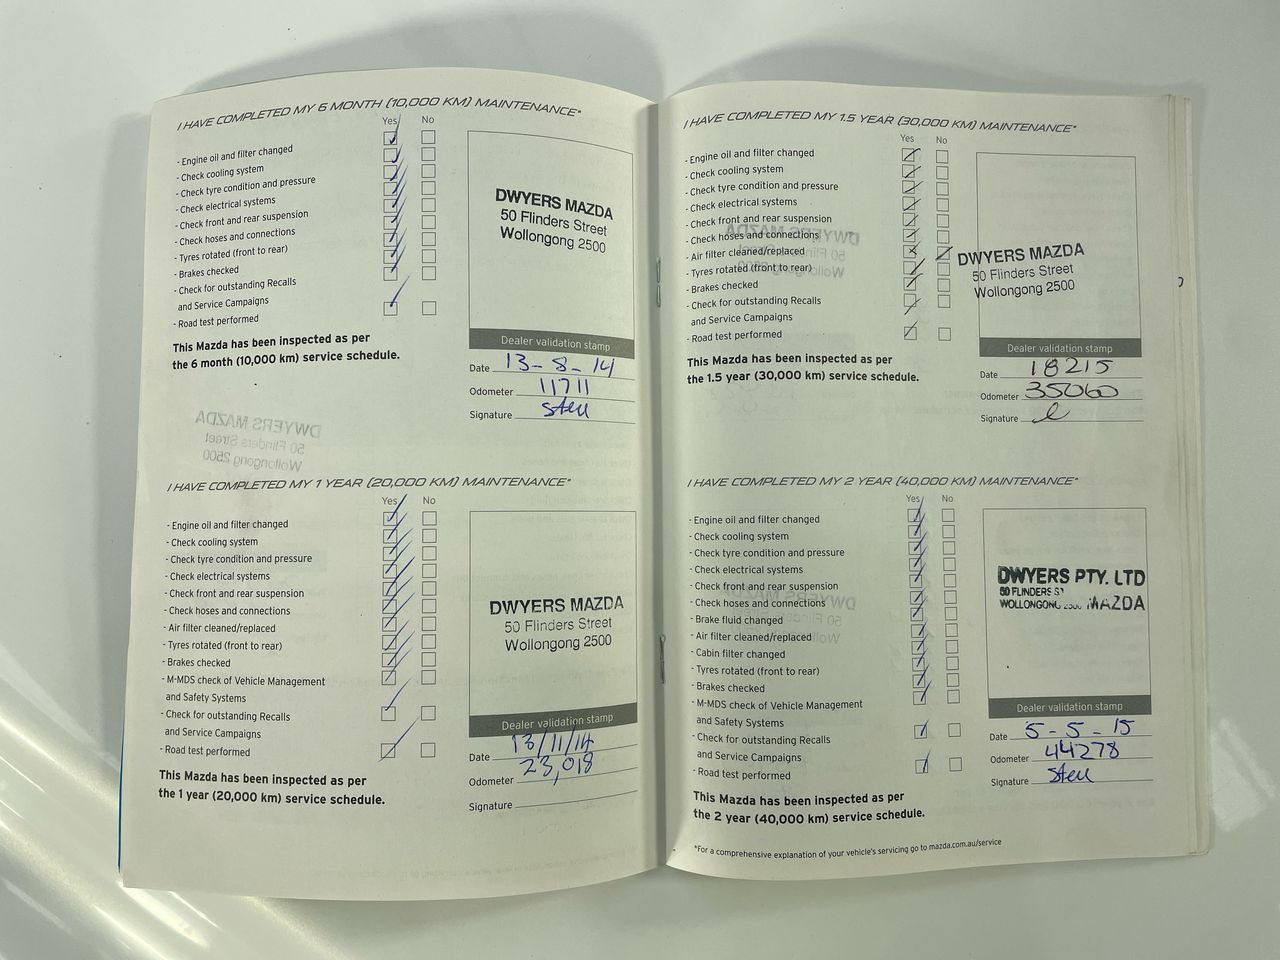 I HAVE COMPLETED MY 6 MONTH (10,000 KM) MAINTENANCE*
Yes No
- Engine oil and filter changed
- Check cooling system
- Check tyre condition and pressure
- Check electrical systems
- Check front and rear suspension
- Check hoses and connections
- Tyres rotated (front to rear)
- Brakes checked
- Check for outstanding Recalls
and Service Campaigns
- Road test performed
This Mazda has been inspected as per
the 6 month (10,000 km) service schedule.
DWYERS MAZDA
50 Flinders Street
Wollongong 2500
Dealer validation stamp
Date 13-8-14
Odometer 11711
Signature
I HAVE COMPLETED MY 1 YEAR (20,000 KM) MAINTENANCE*
Yes No
- Engine oil and filter changed
- Check cooling system
- Check tyre condition and pressure
- Check electrical systems
- Check front and rear suspension
- Check hoses and connections
- Air filter cleaned/replaced
- Tyres rotated (front to rear)
- Brakes checked
- M-MDS check of Vehicle Management
and Safety Systems
- Check for outstanding Recalls
and Service Campaigns
- Road test performed
This Mazda has been inspected as per
the 1 year (20,000 km) service schedule.
DWYERS MAZDA
50 Flinders Street
Wollongong 2500
Dealer validation stamp
Date 13/11/14
Odometer 23,018
Signature
I HAVE COMPLETED MY 1.5 YEAR (30,000 KM) MAINTENANCE*
Yes No
- Engine oil and filter changed
- Check cooling system
- Check tyre condition and pressure
- Check electrical systems
- Check front and rear suspension
- Check hoses and connections
- Air filter cleaned/replaced
- Tyres rotated (front to rear)
- Brakes checked
- Check for outstanding Recalls
and Service Campaigns
- Road test performed
This Mazda has been inspected as per
the 1.5 year (30,000 km) service schedule.
DWYERS MAZDA
50 Flinders Street
Wollongong 2500
Dealer validation stamp
Date 18215
Odometer 35060
Signature
I HAVE COMPLETED MY 2 YEAR (40,000 KM) MAINTENANCE*
Yes No
- Engine oil and filter changed
- Check cooling system
- Check tyre condition and pressure
- Check electrical systems
- Check front and rear suspension
- Check hoses and connections
- Brake fluid changed
- Air filter cleaned/replaced
- Cabin filter changed
- Tyres rotated (front to rear)
- Brakes checked
- M-MDS check of Vehicle Management
and Safety Systems
- Check for outstanding Recalls
and Service Campaigns
- Road test performed
This Mazda has been inspected as per
the 2 year (40,000 km) service schedule.
DWYERS PTY. LTD
50 FLINDERS ST
WOLLONGONG 2500 MAZDA
Dealer validation stamp
Date 5-5-15
Odometer 44278
Signature
*For a comprehensive explanation of your vehicle's servicing go to mazda.com.au/service